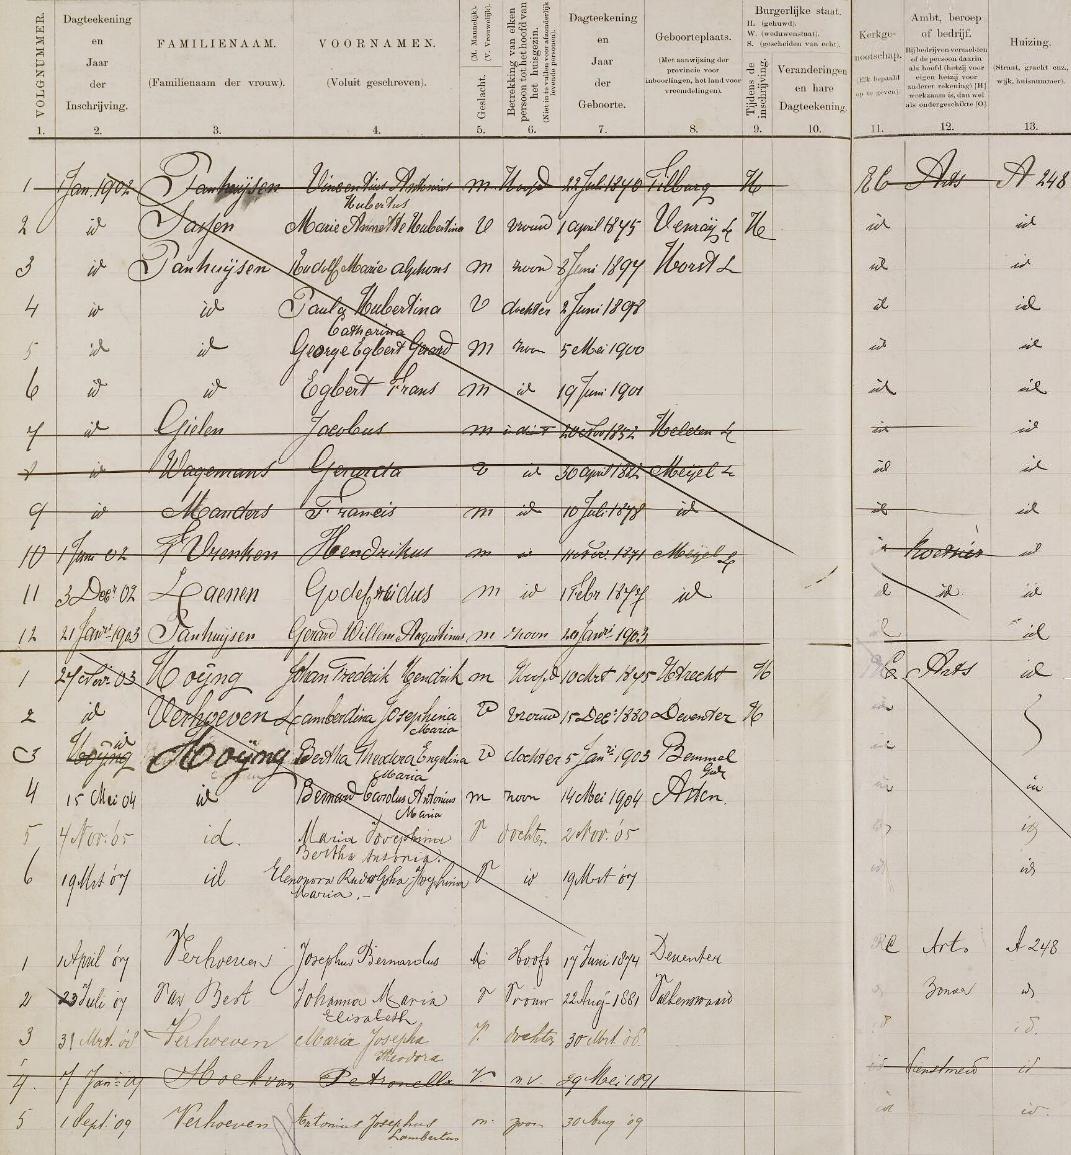 VOLGNUMMER.
1.
Dagteekening
en
Jaar
der
Inschrijving.
2.
FAMILIENAAM.
(Familienaam der vrouw).
3.
VOORNAMEN.
(Voluit geschreven).
4.
(M. Mannelijk).
(V. Vrouwelijk).
Geslacht.
5.
Betrekking van elken
persoon tot het hoofd van
het huisgezin.
6.
Dagteekening
en
Jaar
der
Geboorte.
7.
Geboorteplaats.
(Met aanwijzing der
provincie voor
inboorlingen, het land voor
vreemdelingen).
8.
Burgerlijke staat.
H. (gehuwd).
W. (weduwenstaat).
S. (gescheiden van echt).
Tijdens de
inschrijving.
9.
Veranderingen
en hare
Dagteekening.
10.
Kerkge-
nootschap.
(Elk bepaald
op te geven).
11.
Ambt, beroep
of bedrijf.
Bij bedrijven vermelden
of de persoon daarin
als hoofd (hetzij voor
eigen hetzij voor
anderer rekening) [H]
werkzaam is, dan wel
als ondergeschikte [O]
12.
Huizing.
(Straat, gracht enz.,
wijk, huisnummer).
13.
1 Jan. 1902 Panhuijsen Vincentius Antonius Hubertus m Hoofd 22 Juli 1840 Tilburg H RC Arts A 248
2 id Sassen Marie Annette Hubertina V vrouw 1 april 1875 Venraij L H id id
3 id Panhuijsen Rudolf Marie alphons m zoon 8 Juni 1897 Horst L id id
4 id id Paula Hubertina Catharina V dochter 2 Juni 1898 id id
5 id id George Egbert Gerard m zoon 5 Mei 1900 id id
6 id id Egbert Frans m id 19 Juni 1901 id id
7 id Gielen Jacobus m 1852 Helden L id id
id Wagemans Gerarda V id 30 april 1882 Meijel L id id
9 id Manders Francis m id 10 Juli 1878 id id id
10 1 Juni 02 Vrenken Hendrikus m id 1871 Meijel L id koetsier id
11 3 Decr 02 Laenen Godefridus m id 1 Febr id id id id
12 21 Janri 1903 Panhuijsen Gerard Willem Augustinus m zoon 20 Janri 1903 id id
1 27 Novr 03 Hoÿng Johan Frederik Hendrik m Hoofd 10 Mrt 1875 Utrecht H RC Arts id
2 id Verhoeven Lambertina Josephina Maria V vrouw 15 Decr 1880 Deventer H id
3 Hoÿng id Hoÿng Bertha Theodora Engelina Maria V dochter 5 Janri 1903 Bemmel Geld id
4 15 Mei 04 id Bernard Carolus Antonius Maria m zoon 14 Mei 1904 Asten. id id
5 4 Nov. '05 id. Maria Josephina Bertha Antonia. V dochter 2 Nov. '05 id id
6 19 Mrt '07 id Elenonora Rudolpha Josephina Maria. V id 19 Mrt '07 id id
1 1 April '07 Verhoeven Josephus Bernardus M Hoofd 17 Juni 1874 Deventer RC Arts A 248
2 23 Juli '07 Van Best Johanna Maria Elisabeth V Vrouw 22 Aug. 1881 Valkenswaard id Zonder id
3 31 Mrt. '08 Verhoeven Maria Josepha Theodora V. dochter 30 Mrt '08 id id.
4. 7 Jan: '09 Hoekvan Petronella V n.v. 29 Mei 1891 id dienstmeid id
5 1 Sept: '09 Verhoeven Antonius Josephus Lambertus m. zoon 30 Aug '09 id id.